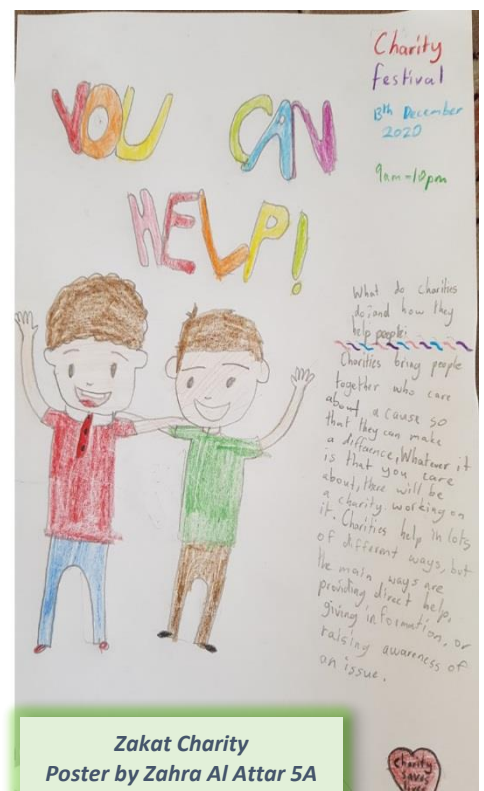 YOU CAN
HELP!
Charity
festival
8th December
2020
9am-10pm
What do charities
do; and how they
help people:
Charities bring people
together who care
about a cause so
that they can make
a diffaence, Whatever it
is that you care
about, there will be
a charity working on
it. Charities help in lots
of different ways, but
the main ways are
providing direct help,
giving information, or
raising awareness of
an issue.
Charity
saves
lives
Zakat Charity
Poster by Zahra Al Attar 5A